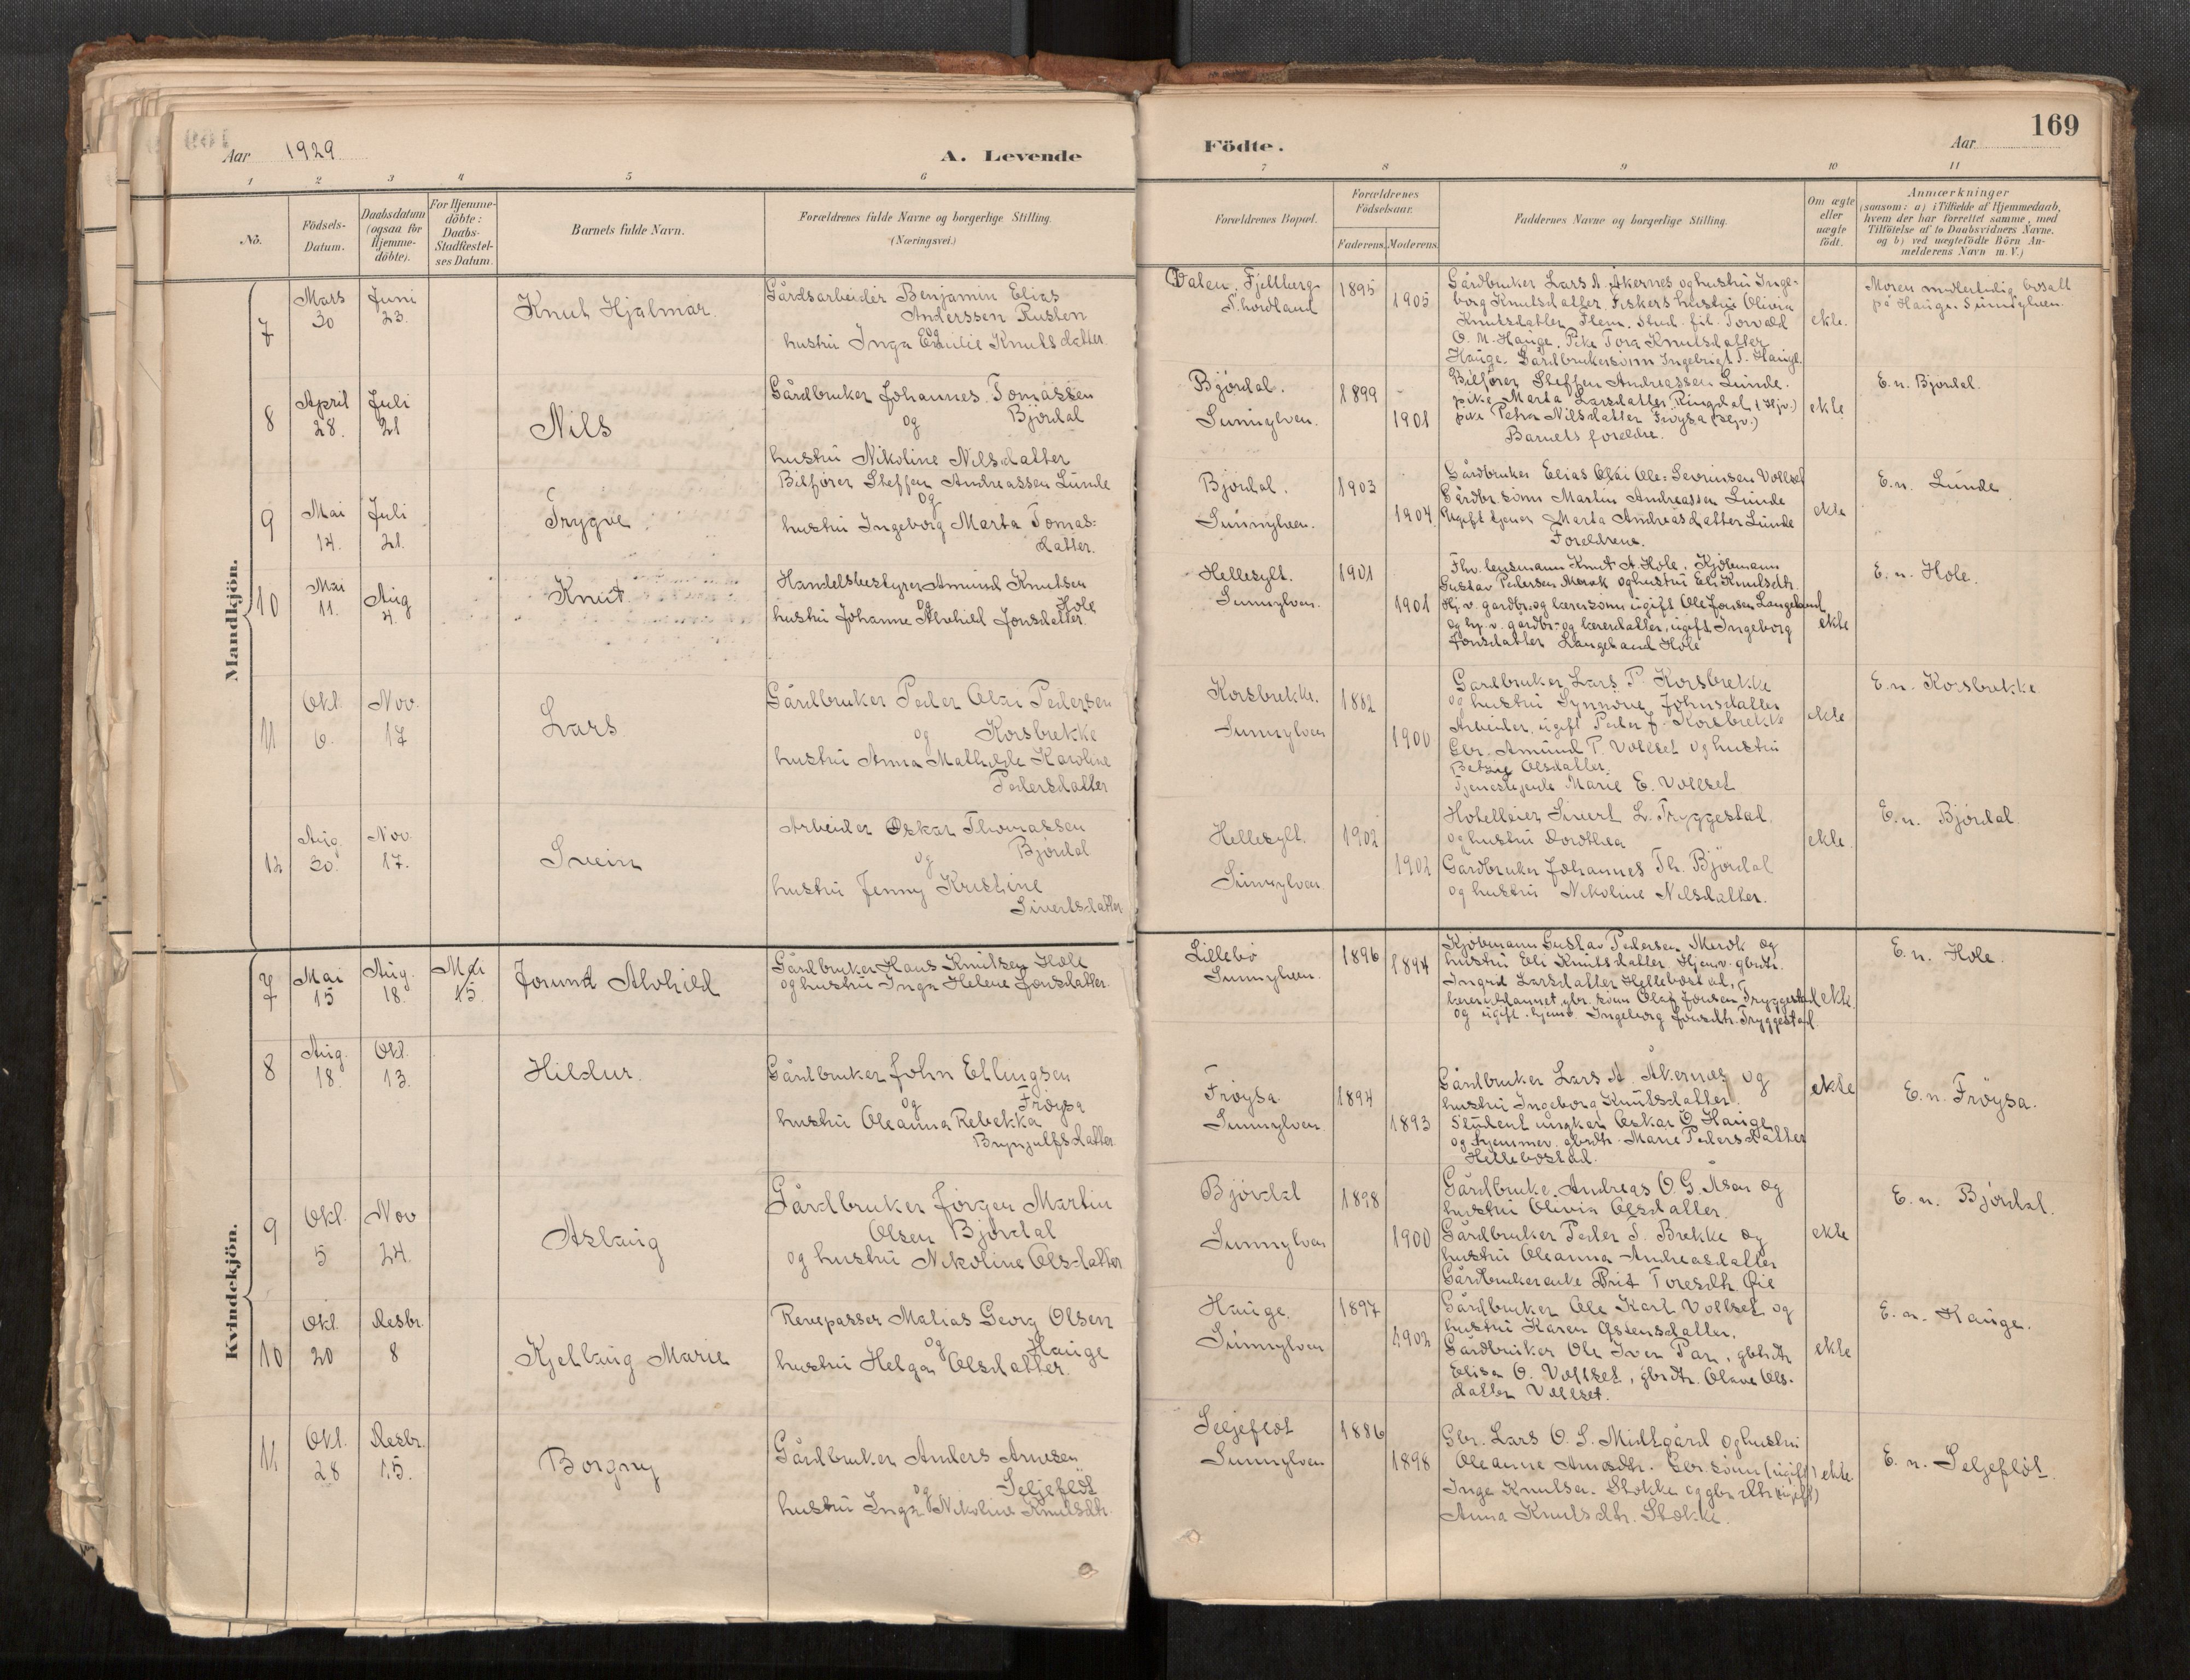 Aar 1929
A. Levende
1 2 3 4 5 6
No.
Födsels-
Datum.
Daabsdatum
(ogsaa for
Hjemme-
döbte).
For Hjemme-
döbte:
Daabs-
Stadfæstel-
ses Datum.
Barnets fulde Navn.
Forældrenes fulde Navne og borgerlige Stilling.
(Næringsvei.)
Mandkjön.
7
Mars
30
Juni
23.
Knut Hjalmar.
Gårdsarbeider Benjamin Elias
Anderssen Rusten
og
hustru Inga Emilie Knutsdatter
8
April
28.
Juli
21
Nils
Gårdbruker Johannes Tomassen
og Bjørdal
hustru Nikoline Nilsdatter
9
Mai
14.
Juli
21.
Trygve
Bilfører Steffen Andreassen Lunde
og
hustru Ingeborg Marta Tomas-
datter.
10
Mai
11.
Aug
4.
Knut
Handelsbestyrer Amund Knutsen
og Hole
hustru Johanne Alvhild Jonsdatter
11
Okt
6.
Nov.
17
Lars
Gårdbruker Peder Olai Pedersen
og Korsbrekke
hustru Anna Mathilde Karoline
Pedersdatter
12
Aug
30.
Nov.
17.
Svein
Arbeider Oskar Thomassen
og Bjørdal
hustru Jenny Kristine
Sivertsdatter
Kvindekjön.
7
Mai
15
Aug.
18.
Mai
15.
Jorund Alvhild
Gårdbruker Hans Knutsen Hole
og hustru Inga Helene Jonsdatter.
8
Aug.
18.
Okt.
13.
Hildur.
Gårdbruker John Ellingsen
og Frøysa
hustru Oleanna Rebekka
Brynjulfsdatter
9
Okt.
5
Nov
24.
Aslaug
Gårdbruker Jørgen Martin
Olsen Bjørdal
og hustru Nikoline Olsdatter
10
Okt.
20
Desbr.
8
Kjellaug Marie
Revepasser Matias Georg Olsen
og Hauge
hustru Helga Olsdatter.
11
Okt.
28
Desbr.
15.
Borgny
Gårdbruker Anders Arnesen
og Seljefløt
hustru Inga Nikoline Knutsdtr.
Födte.
Aar
169
7 8 9 10 11
Forældrenes Bopæl.
Forældrenes
Födselsaar.
Faderens. Moderens.
Faddernes Navne og borgerlige Stilling.
Om ægte
eller
uægte
födt.
Anmærkninger
(saasom: a) i Tilfælde af Hjemmedaab,
hvem der har forrettet samme, med
Tilföielse af to Daabsvidners Navne.
og b) ved uægtefödte Börn An-
melderens Navn m. V.)
Valen, Fjellberg
S.hordland
1895
1905
Gårdbruker Lars A. Åkernes og hustru Inge-
borg Knutsdatter. Fiskers hustru Olivia
Knutsdatter Flem. Stud. fil. Torvald
O. M. Hauge. Pike Tora Knutsdatter
Hauge. Gårdbrukersønn Ingebrigt P. Hauge.
ekte.
Moren midlertidig bosatt
på Hauge. Sunnylven.
Bjørdal.
Sunnylven.
1899
1901
Bilfører Steffen Andreassen Lunde.
pike Marta Larsdatter Ringdal (Hjv.)
pike Petra Nilsdatter Frøysa (Hjv.)
Barnets foreldre.
ekte
E. n. Bjørdal.
Bjørdal.
Sunnylven.
1903
1904
Gårdbruker Elias Olai Ole-Sevrinsen Vollset
Gårdbr.sønn Martin Andreassen Lunde
Ugift tjener Marta Andreasdatter Lunde
Foreldrene.
ekte
E. n. Lunde
Hellesylt.
Sunnylven.
1901
1901
Fhv. lensmann Knut A. Hole. Kjøbmann
Gustav Pedersen Merok og hustru Eli Knutsdtr.
Hj.v. gardbr. og lærersønn ugift Ole Jonsen Langeland
og hj. v. gardbr.- og lærerdatter, ugift Ingeborg
Jonsdatter Langeland Hole
ekte
E. n. Hole.
Korsbrekke.
Sunnylven
1882
1900
Gardbruker Lars P. Korsbrekke
og hustru Synnøve Johnsdatter
Arbeider, ugift Peder J. Korsbrekke
Gbr. Amund P. Vollset og hustru
Betzye Olsdatter.
Tjenestejente Marie E. Vollset
ekte
E. n. Korsbrekke.
Hellesylt.
Sunnylven
1902
1902
Hotelleier Sivert L. Tryggestad
og hustru Dorothea
Gårdbruker Johannes Th. Bjørdal
og hustru Nikoline Nilsdatter.
ekte.
E. n. Bjørdal
Lillebø
Sunnylven.
1896
1894
Kjøbmann Gustav Pedersen Merok og
hustru Eli Knutsdatter. Hjemv. gbrdtr.
Ingrid Larsdatter Hellebostad,
lærerutdannet, gbr. sønn Olaf Jonsen Tryggestad
og ugift hjemv. Ingeborg Jonsdtr. Tryggestad.
ekte.
E. n. Hole.
Frøysa
Sunnylven
1894
1893
Gårdbruker Lars A. Åkernes og
hustru Ingeborg Knutsdatter.
Student ungkar Oskar O. Hauge
og hjemmev. gbrdtr. Marie Pedersdatter
Hellebostad.
ekte
E. n. Frøysa.
Bjørdal
Sunnylven
1898
1900
Gårdbruker Andreas O. G. Åsen og
hustru Olivia Olsdatter.
Gårdbruker Peder S. Brekke og
hustru Oleanna Andreasdatter
Gårdbrukerenke Brit Toresdtr. Øie
ekte
E. n. Bjørdal.
Hauge.
Sunnylven
1897
1902
Gårdbruker Ole Karl Vollset og
hustru Karen Østensdatter.
Gårdbruker Ole Iver, gbrdtr.
Elise O. Vollset, gbrdtr. Olave Ols-
datter Vollset.
ekte
E. n. Hauge.
Seljefløt
Sunnylven
1886
1898
Gbr. Lars O. S. Midtgård og hustru
Oleanne Arnesdtr. Gbr.sønn (ugift)
Inge Knutsen Stokke og gbr.dtr. (ugift)
Anna Knutsdtr. Stokke.
ekte.
E. n. Seljefløt